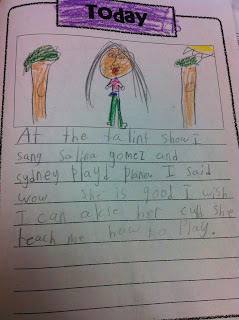 Today
At the talint show i
sang Salina gomez and
sydney playd plano. I said
wow she is good I wish
I can akse her cud she
teach me haw to Play.